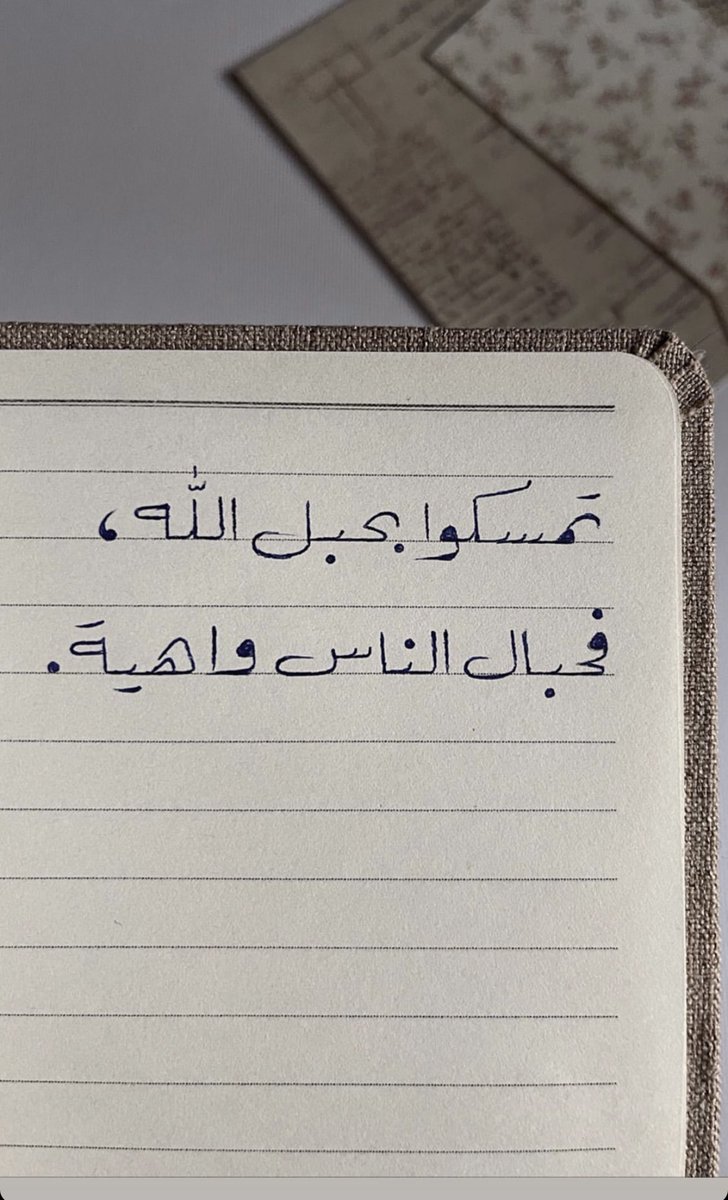 تمسكوا بحبل اللّٰه،
فحبال الناس واهية.